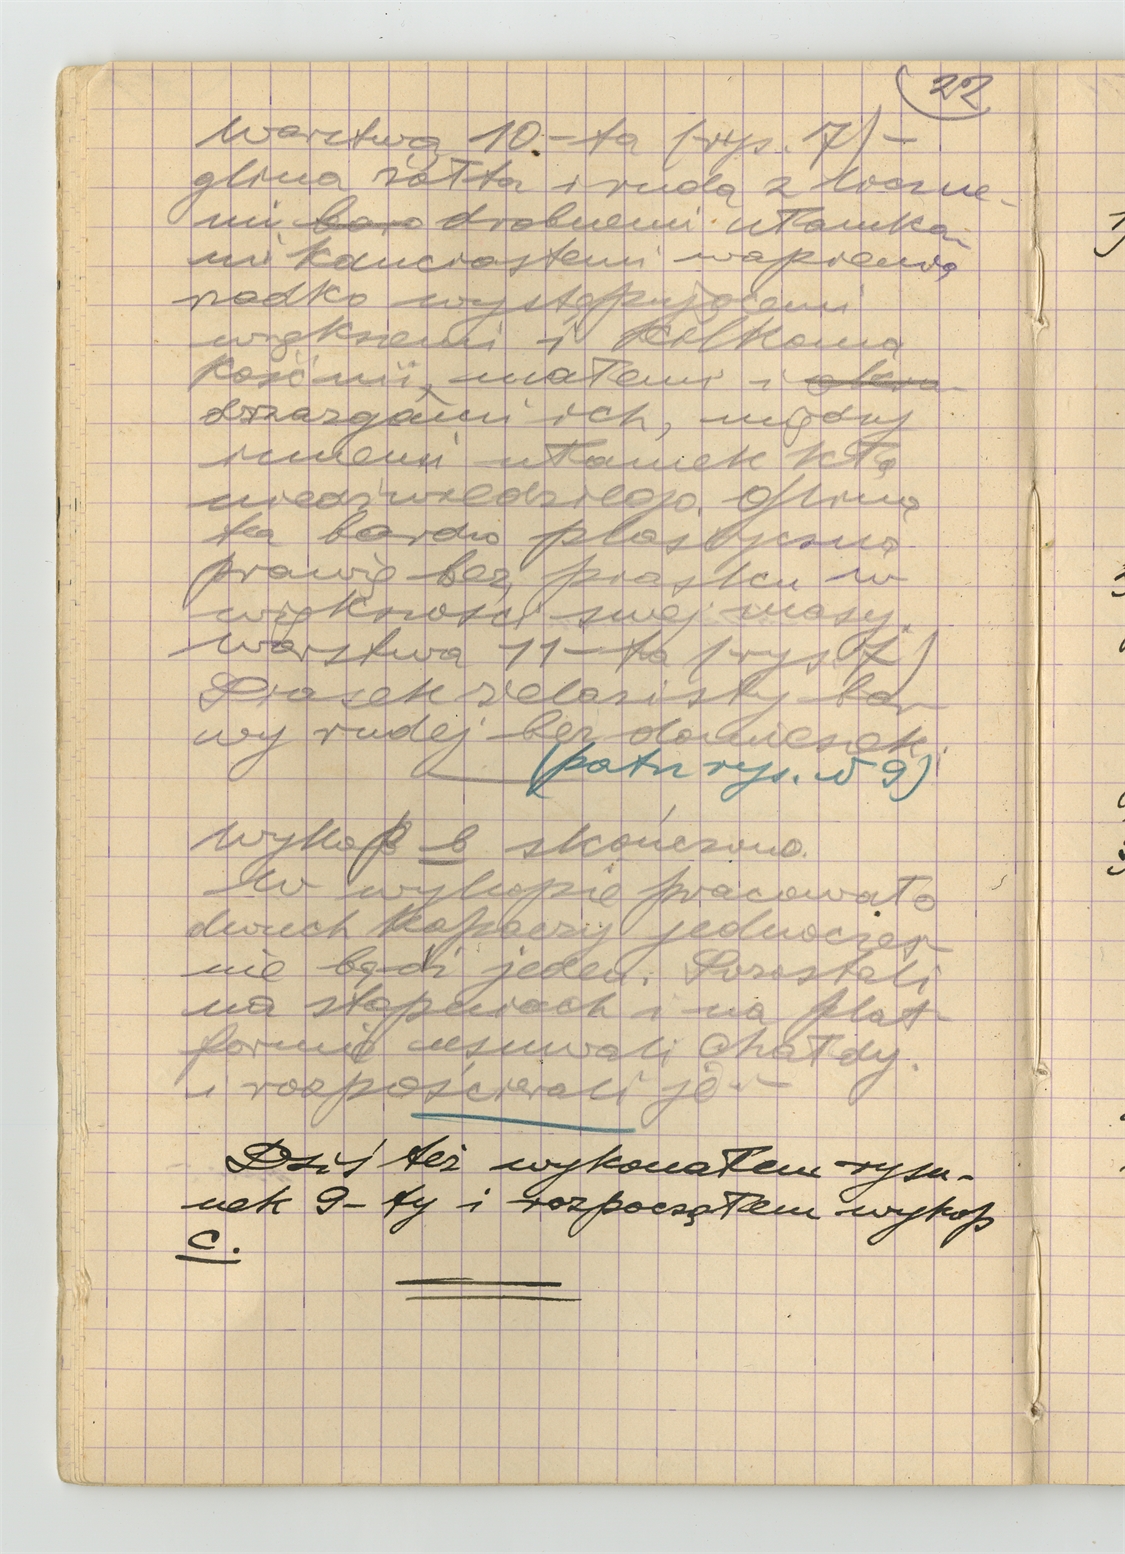 22
Warstwa 10-ta (rys. 7) -
glina żółta i ruda z liczne-
mi baro drobnemi ułamka-
mi kanciastemi wapienia
rzadko występującemi
większemi i kilkoma
kośćmi, małemi i okru-
drzazgami ich, między
innemi ułamek kła
niedźwiedziego. Glina
ta bardzo plastyczna
prawie bez piasku w
większości swej masy.
Warstwa 11-ta (rys. 7)
Piasek żelazisty bar-
wy rudej bez domieszek.
(patrz rys. № 9)
Wykop b skończono.
W wykopie pracowało
dwuch kopaczy jednocześ-
nie bądź jeden. Pozostali
na stopniach i na plat-
formie usuwali hałdy.
i rozpościerali je -
Dziś też wykonałem rysu-
nek 9-ty i rozpocząłem wykop
c.